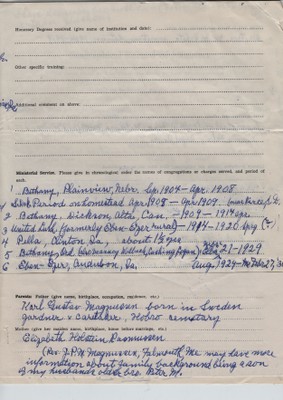 Honorary Degrees received (give name of institution and date):
Other specific training:
Additional comment on above:
Ministerial Service. Please give in chronological order the names of congregations or charges served, and period of each.
1 Bethany, Plainview, Nebr. Sep. 1904 - Apr. 1908
Sick Period on homestead Apr. 1908 - Apr. 1909
2 Bethany Dickson, Alta, Can. - 1909 - 1914 apr.
3 United Luth. (formerly Eben-Ezer rural) - 1914 - 1920 spg (?)
4 Pella, Clinton Ia, about 1½ yrs
5 Bethany 21-1929
6 Eben-Ezer, Audubon, Ia. Aug. 1929 - to Feb 27,
Parents: Father (give name, birthplace, occupation, residence, etc.)
Karl Gustav Magnussen born in Sweden
gardner & carthker, Hobro cemetary
Mother (give her maiden name, birthplace, home before marriage, etc.)
Elizabeth Holstein Rasmussen
(Rev. J.P.M. Magnussen, Falmouth, Me. may have more
information about family background being a son
of my husbands older bro. Peter M.